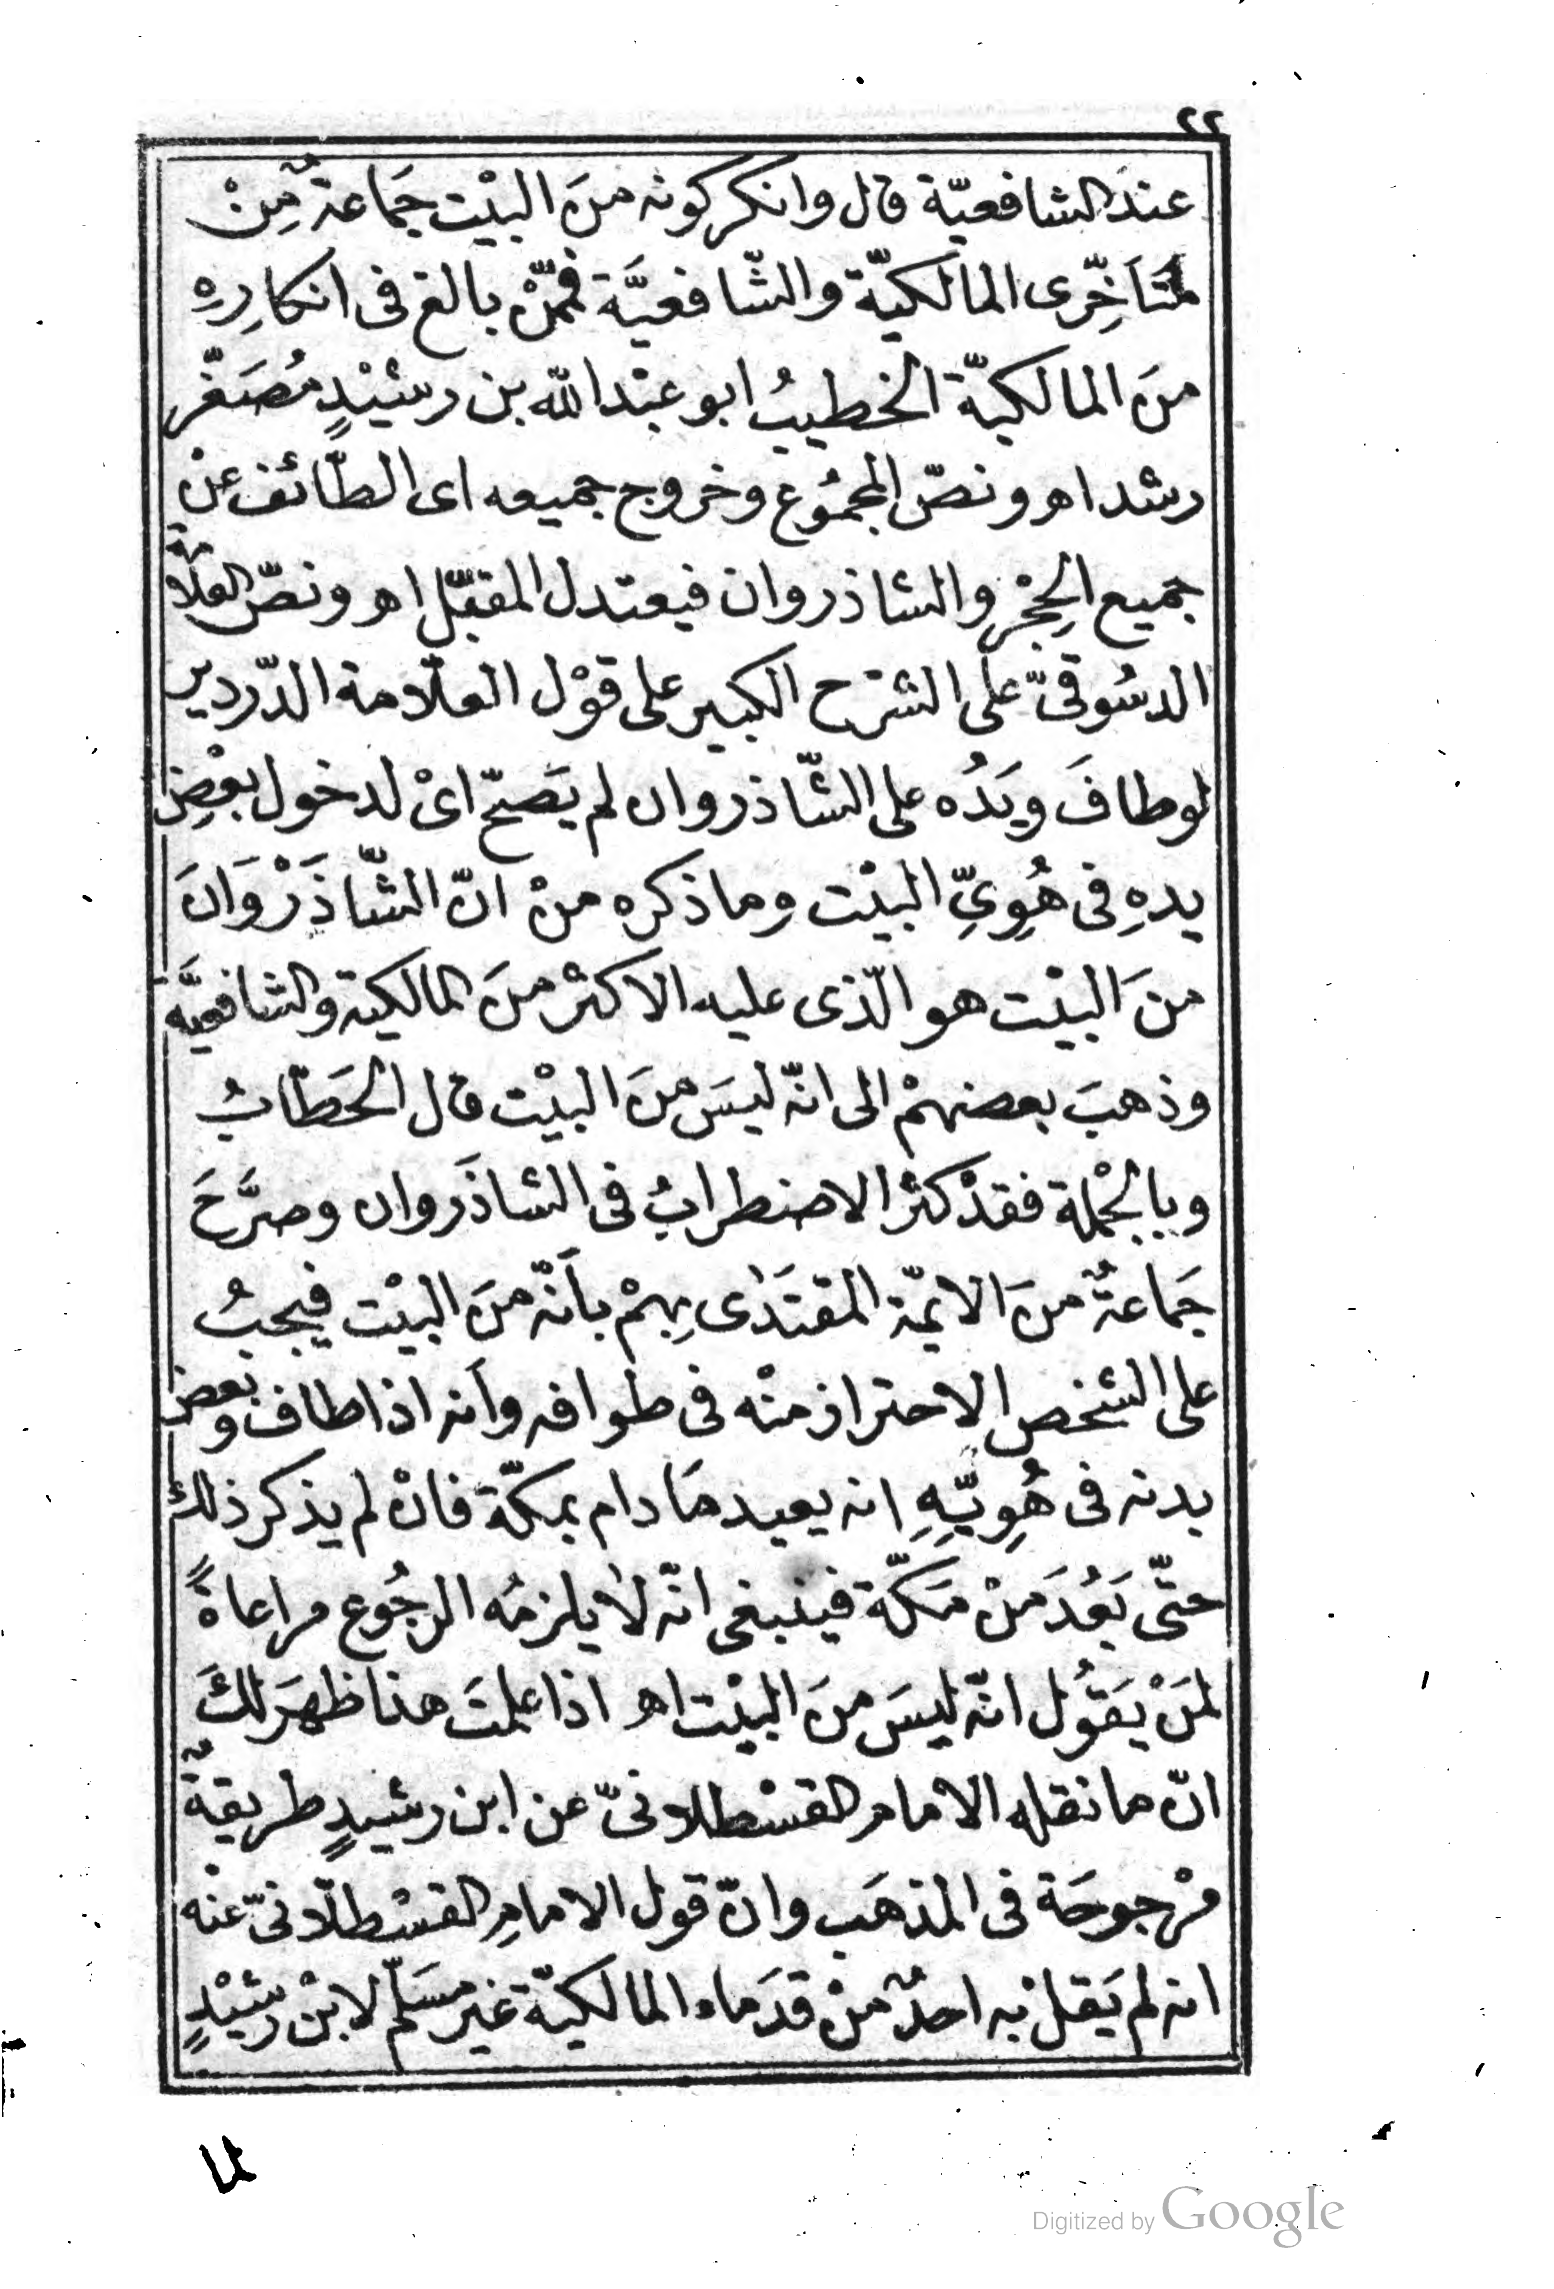 ٢٢
عندَ الشافعيّة قال وانكر كونه منَ البيْت جَماعةٌ مِنْ
مُتَاَخِّرى المالكيّة والشّافعيَّة فمّمنْ بالغ فى انكارِهِ
منَ المالكيّة الخطيبُ ابو عبْدالله بن رشيْدٍ مُصَغّر
رشد اهـ ونصّ المجمُوع وخروج جميعه اى الطّائف عنْ
جميع الحِجْرِ والشاذروان فيعتدل المقبّل اهـ ونصّ العلّامة
الدسُوقىّ على الشرْح الكبير على قوْل العلّامة الدّردير
لو طافَ ويَدُه على الشّاذروان لم يَصحّ اىْ لدخول بعْضِ
يدهِ فى هُوِىِّ البيْت وما ذكره منْ انّ الشّاذَرْوَانَ
منَ البيْت هو الّذى عليه الاكثرْ منَ المالكية والشافعيَّة
وذهبَ بعضهمْ الى انّه ليسَ منَ البيْت قال الحَطّابُ
وبالجْملة فقدْ كثرْ الاضطرابُ فى الشاذَروان وصرَّحَ
جَماعةٌ منَ الائمّة المقتَدٰى بِهمْ بأنّه منَ البيْت فيجبُ
على الشخص الاحتراز منْه فى طوافه وأنه اذا طاف وبعض
بدنه فى هُوِيِّهِ انه يعيد مَا دام بمكّة فانْ لم يذكر ذلك
حتّى بَعُدَ منْ مَكّة فينبغى انّه لا يلزمُه الرجُوع مراعاةً
لمَنْ يَقوُل انّه ليسَ منَ البيْت اهـ اذا علمتَ هذا ظهرَ لكَ
انّ ما نقله الامام القسْطلانىّ عن ابن رشيدٍ طريقةٌ
مرْجوحَة فى المذهَب وانّ قول الامامِ القسْطلّانىّ عنْه
انه لم يَقلْ به احدٌ منْ قدَماء المالكيّة غير مسَلّم لابنْ رشيْدٍ
لما
Digitized by Google